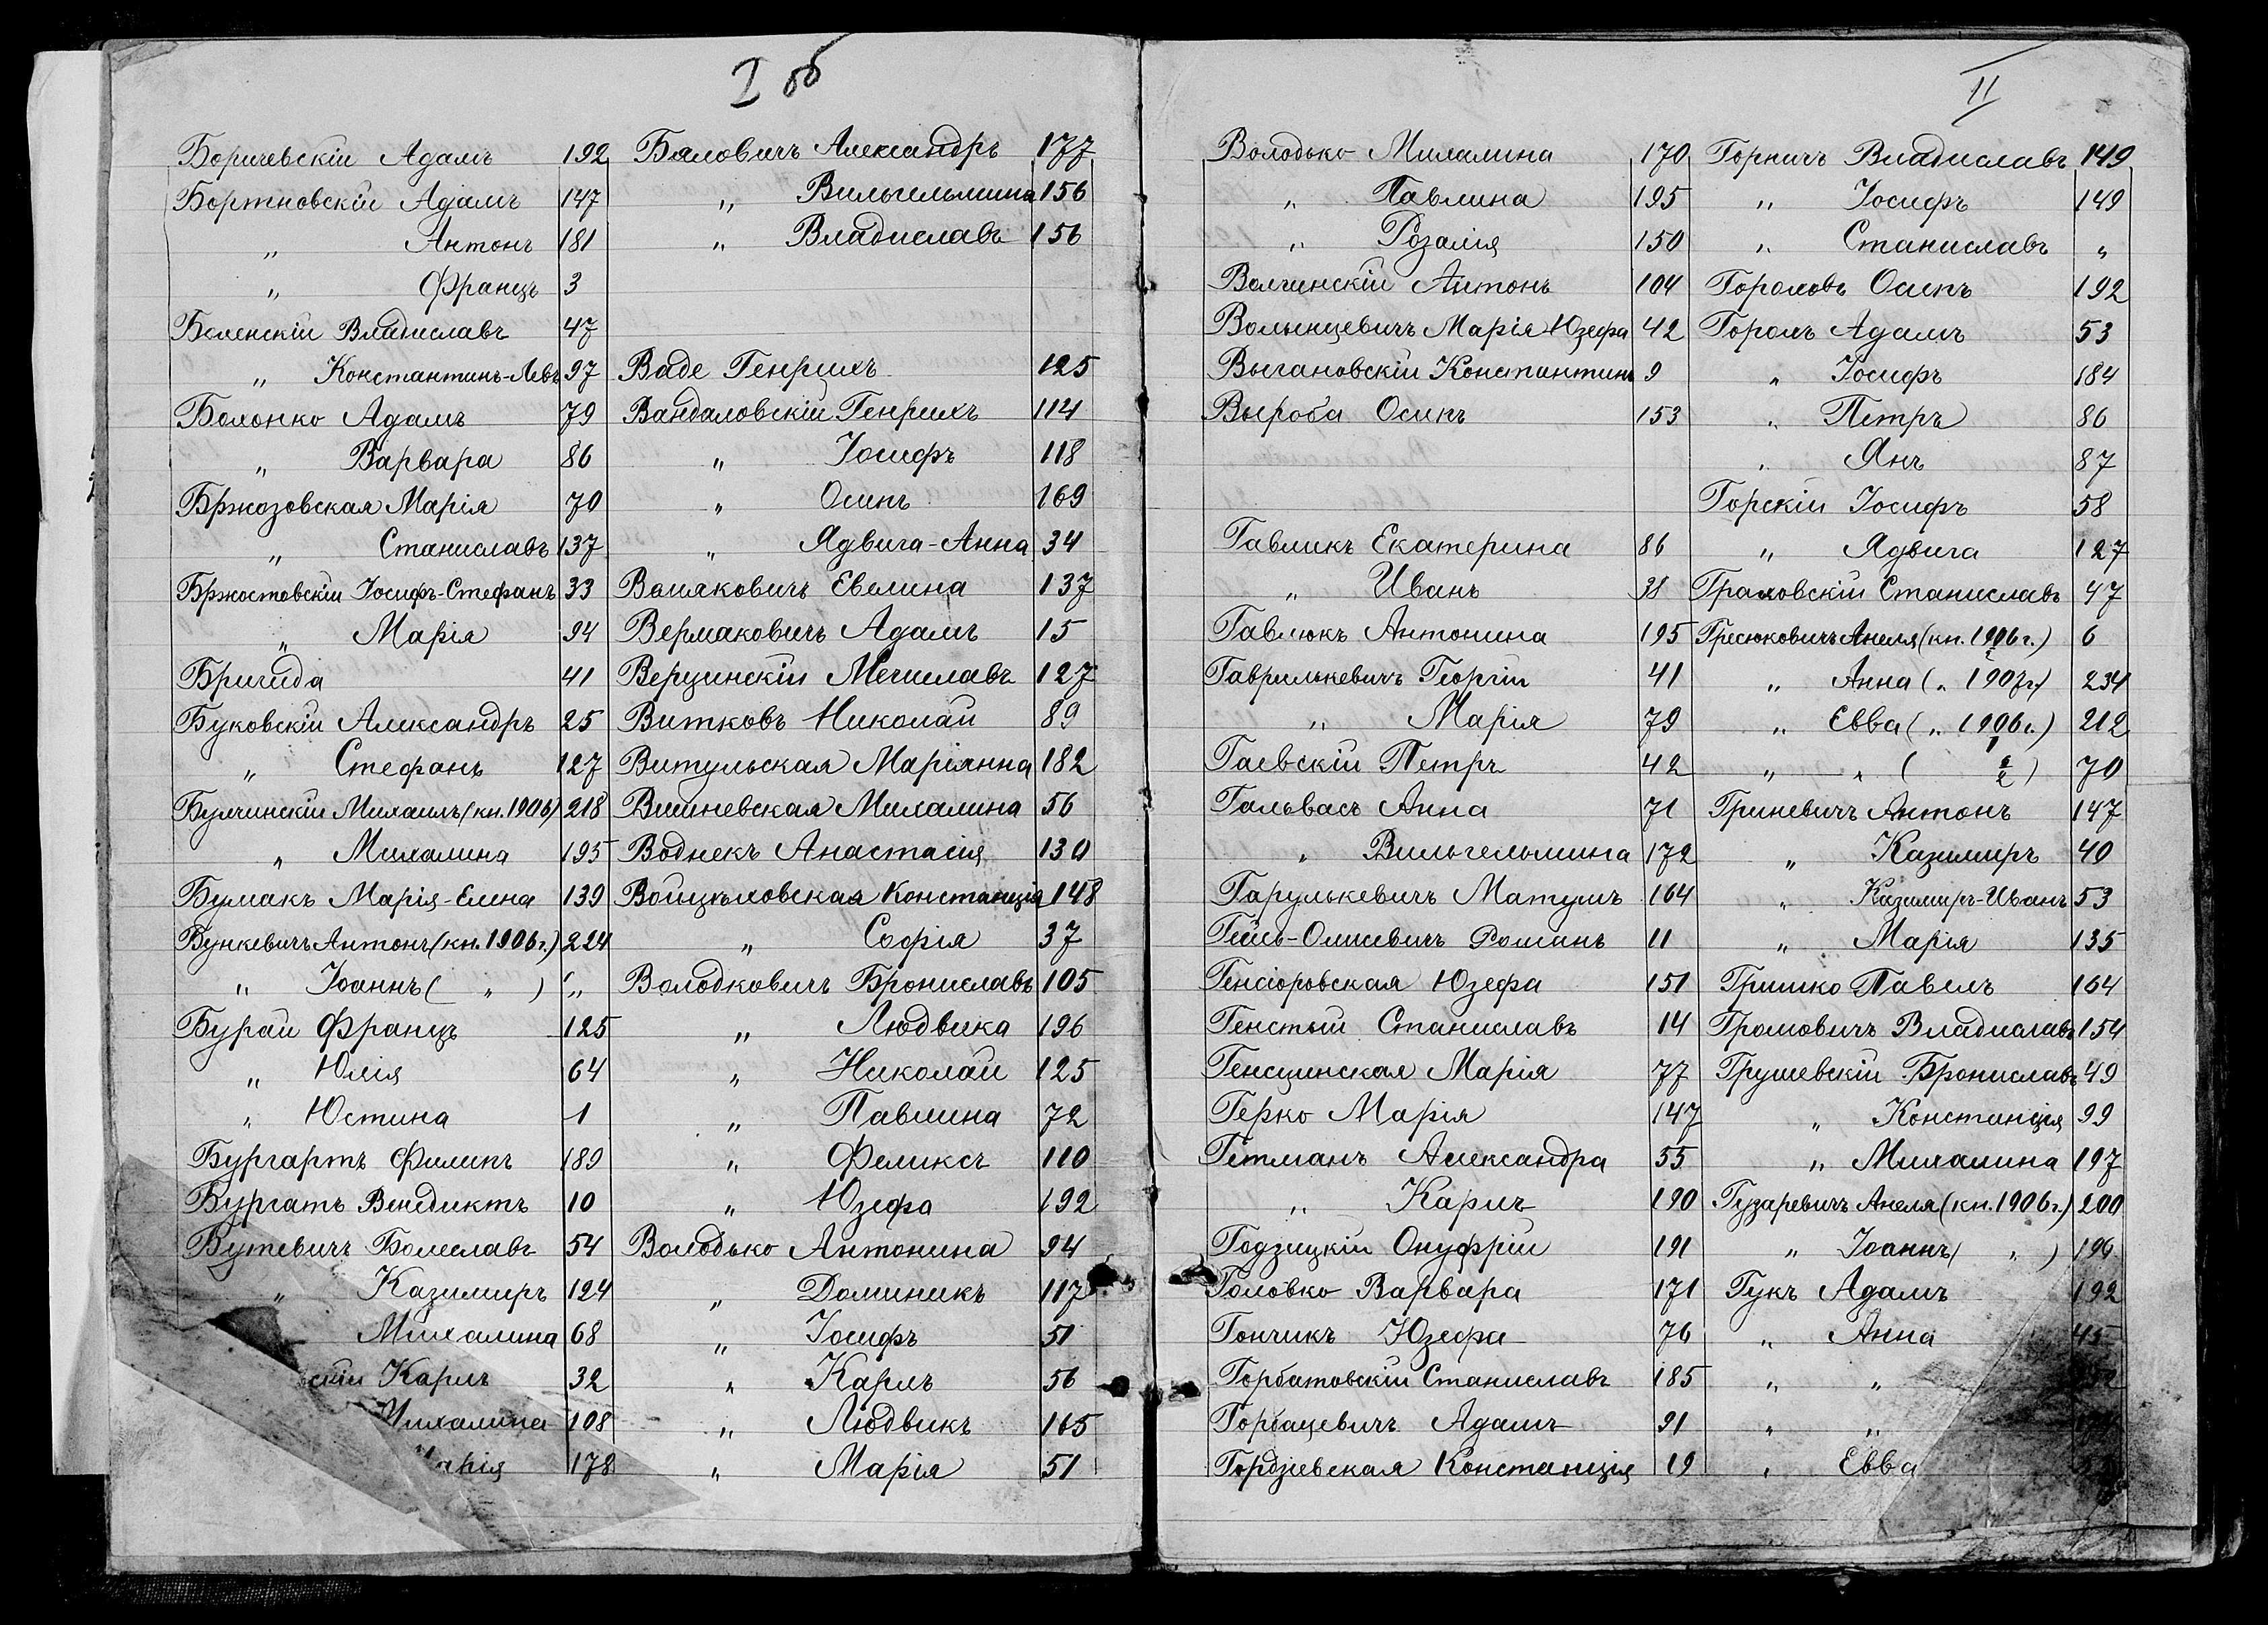 I об
Боричевскій Адамъ 192
Бортновскій Адамъ 147
„ Антонъ 181
„ Францъ 3
Боленскій Владиславъ 47
„ Константинъ-Левъ 97
Болонко Адамъ 79
„ Варвара 86
Бржозовская Марія 70
„ Станиславъ 137
Бржостовскій Іосифъ-Стефанъ 33
„ Марія 94
Бригида 41
Буковскій Александръ 25
„ Стефанъ 127
Булчинскій Михаилъ (кн. 1906) 218
„ Михалина 195
Бумакъ Марія-Елена 139
Бункевичъ Антонъ (кн. 1906 г.) 224
„ Іоаннъ ( „ ) „
Бурай Францъ 125
„ Юлія 64
„ Юстина 1
Бургартъ Филипъ 189
Бургатъ Венедиктъ 10
Бутевичъ Болеславъ 54
„ Казимиръ 124
Михалина 68
скій Карлъ 32
Михалина 108
Марія 178
Бяловичъ Александръ 177
„ Вильгельмина 156
„ Владиславъ 156
Ваде Генрихъ 125
Вандаловскій Генрихъ 114
„ Іосифъ 118
„ Осипъ 169
„ Ядвига-Анна 34
Валяковичъ Евелина 137
Вермаковичъ Адамъ 15
Верцинскій Мечилавъ 127
Витковъ Николай 89
Витульская Маріянна 182
Вишневская Михалина 56
Воднекъ Анастасія 130
Войцѣховская Констанція 148
„ Софія 37
Володковичъ Брониславъ 105
„ Людвика 196
„ Николай 125
„ Павлина 72
„ Феликсъ 110
„ Юзефа 192
Володько Антонина 94
„ Доминикъ 117
„ Іосифъ 51
„ Карлъ 56
„ Людвикъ 165
„ Марія 51
II
Володько Михалина 170
„ Павлина 195
„ Розалія 150
Волчинскій Антонъ 104
Волынцевичъ Марія Юзефа 42
Выгановскій Константинъ 9
Выроба Осипъ 153
Гавликъ Екатерина 86
„ Иванъ 38
Гавлюкъ Антонина 195
Гаврилькевичъ Георгій 41
„ Марія 79
Гаевскій Петръ 42
Гальвасъ Анна 71
„ Вильгельмина 172
Гарулькевичъ Матушъ 164
Гейсъ-Олисевичъ Романъ 11
Генсіоровская Юзефа 151
Генстый Станиславъ 14
Генсцинская Марія 77
Герко Марія 147
Гетманъ Александра 55
„ Карлъ 190
Годзицкій Онуфрій 191
Головко Варвара 171
Гончикъ Юзефа 76
Горбатовскій Станиславъ 185
Горбацевичъ Адамъ 91
Гордзіевская Констанція 19
Горничъ Владиславъ 149
„ Іосифъ 149
„ Станиславъ „
Гороховъ Осипъ 192
Горохъ Адамъ 53
„ Іосифъ 184
„ Петръ 86
„ Янъ 87
Горскій Іосифъ 58
„ Ядвига 127
Граховскій Станиславъ 47
Гресюковичъ Анеля (кн. 1906 г.) 6
„ Анна ( „ 1907 г.) 234
„ Евва ( „ 1906 г.) 212
„ „ ( ) 70
Гриневичъ Антонъ 147
„ Казимиръ 40
„ Казимиръ-Иванъ 53
„ Марія 135
Гришко Павелъ 164
Громовичъ Владиславъ 154
Грушевскій Брониславъ 49
„ Констанція 99
„ Михалина 197
Гузаревичъ Анеля (кн. 1906 г.) 200
„ Іоаннъ ( „ ) 196
Гукъ Адамъ 192
„ Анна 45
„ „
„ „
„ Евва